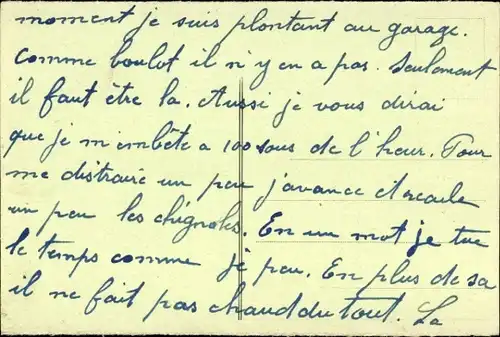 moment je suis plontant au garage.
Comme boulot il n'y en a pas. Seulement
il faut être la. Aussi je vous dirai
que je m'embête a 100 sous de l'heur. Pour
me distraire un peu j'avance et recule
un peu les chignoles. En un mot je tue
le temps comme je peu. En plus de sa
il ne fait pas chaud du tout. La